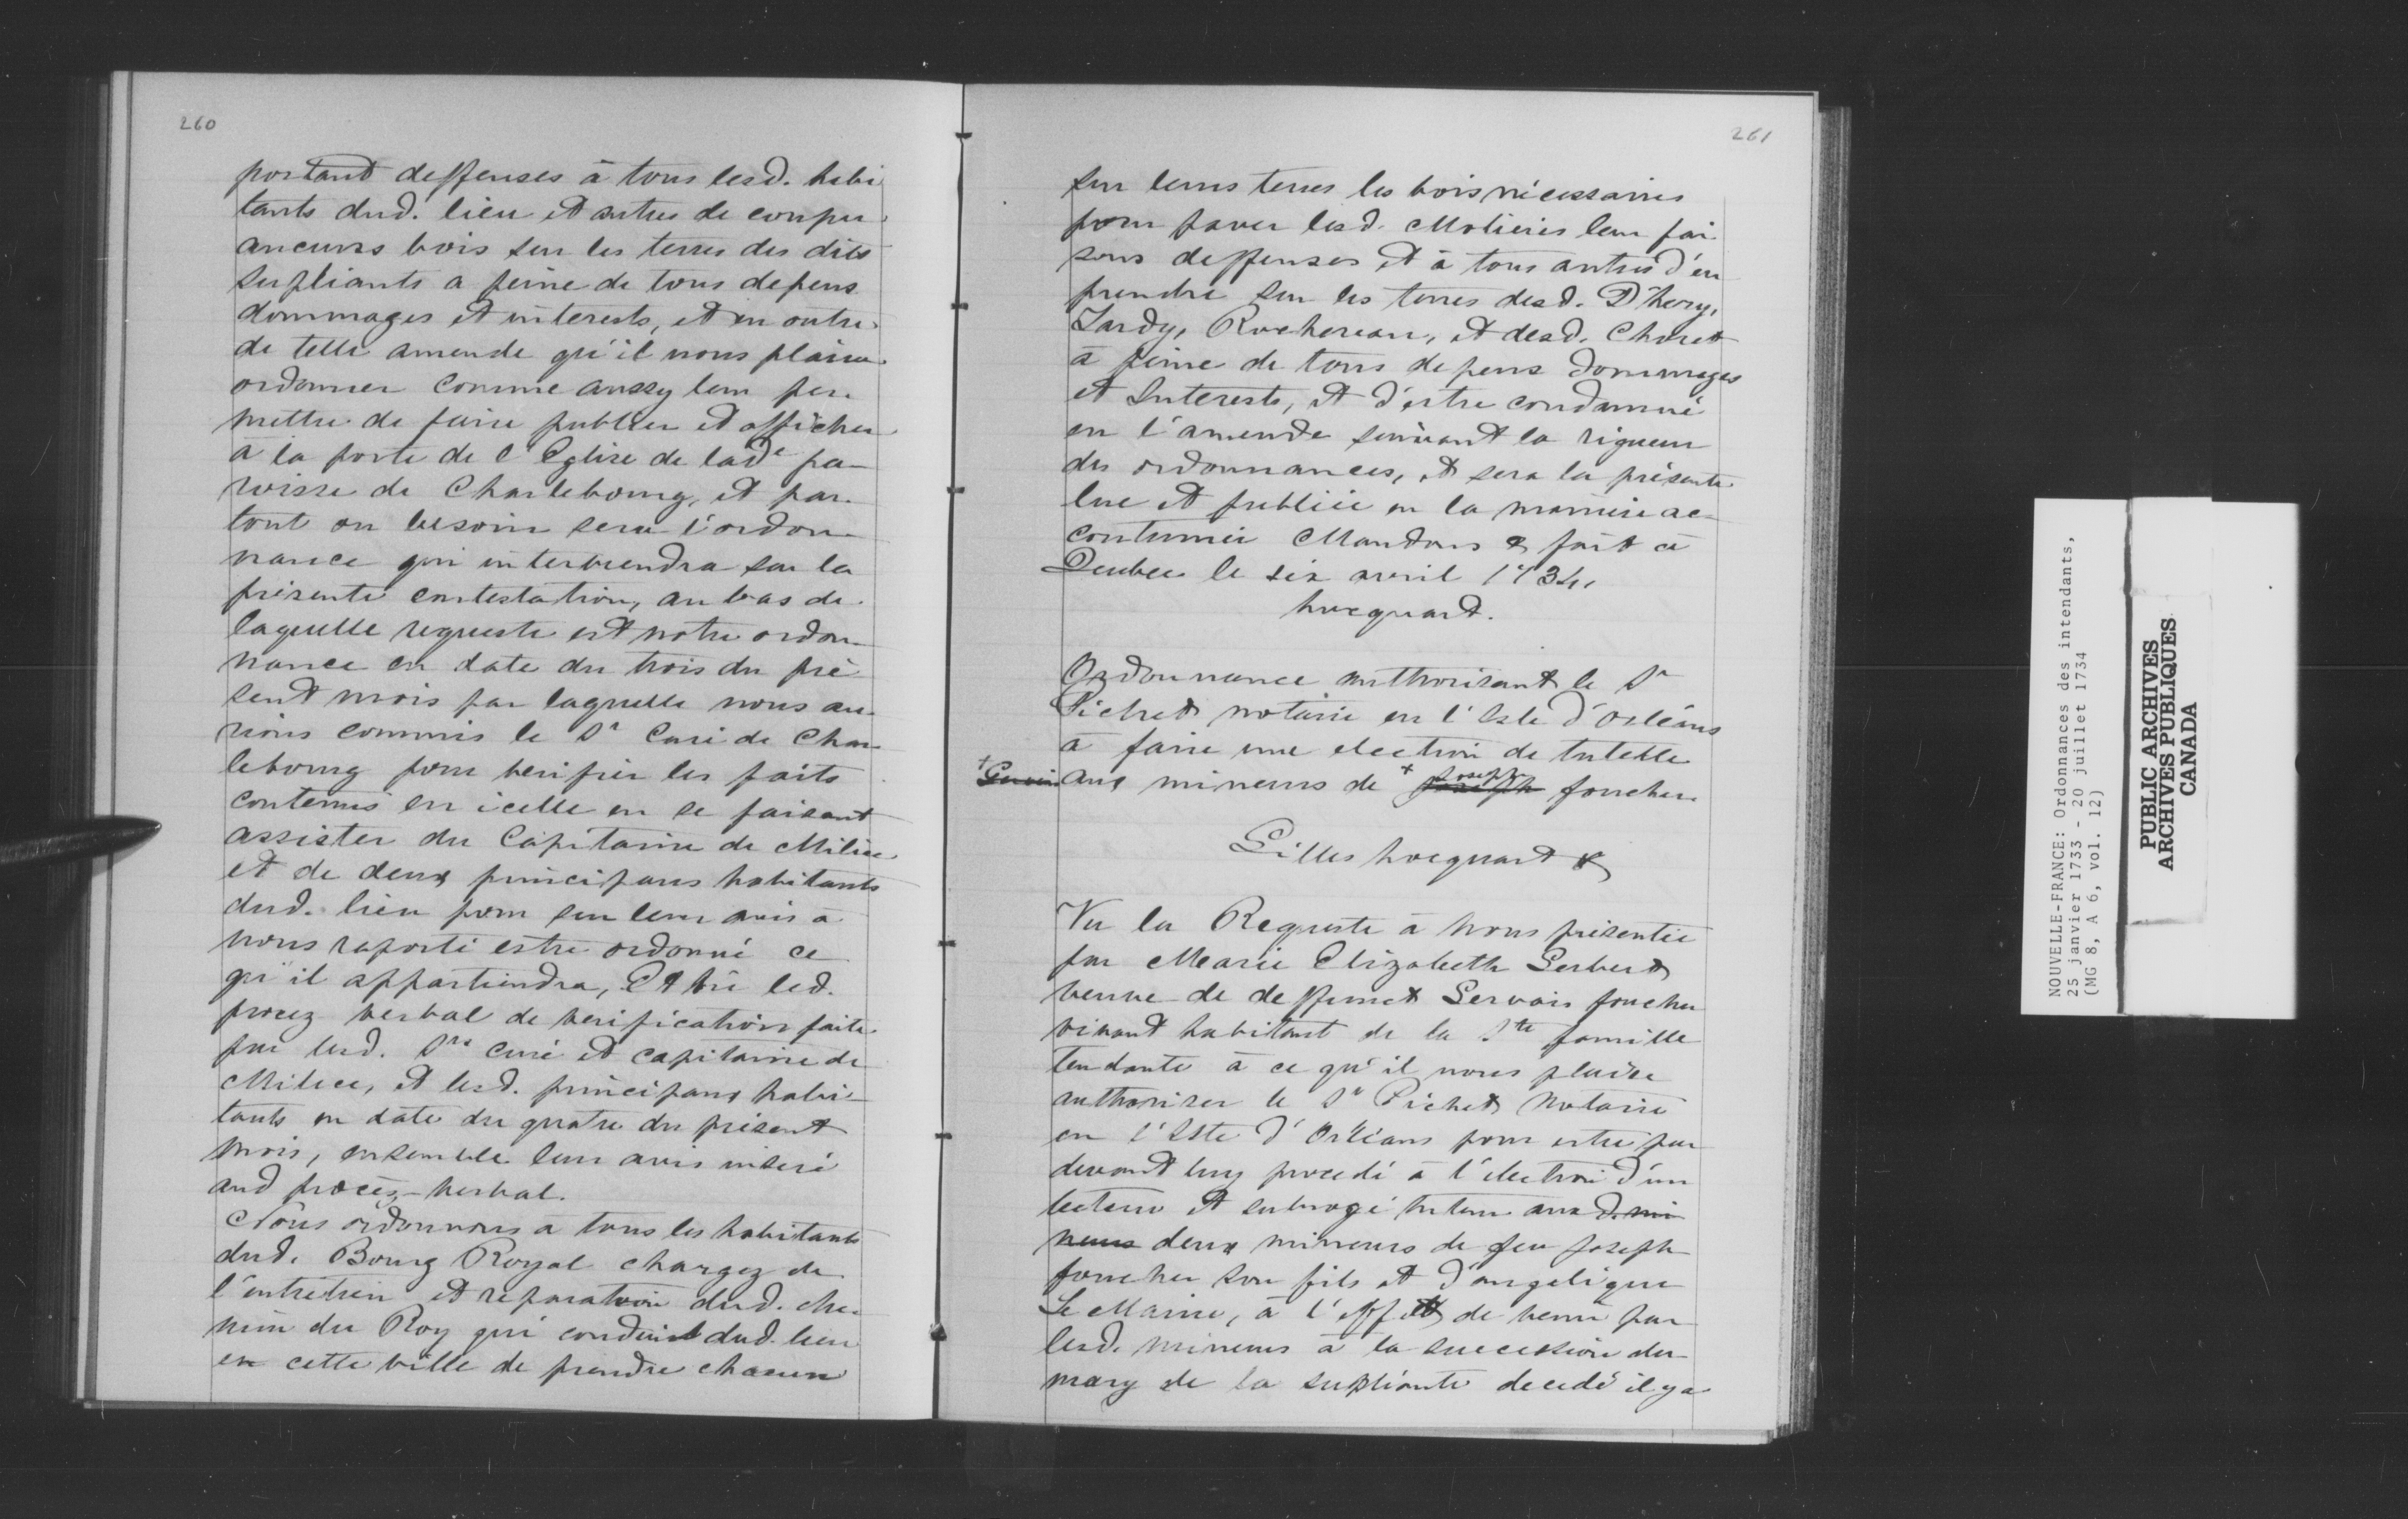 260
portant deffenses à tous lesd. habi
tants dud. lieu et autres de couper
aucuns bois sur les terres des dits
supliants a peine de tous depens
dommages et interests, et en outre
de telle amende qu'il nous plaira
ordonner comme aussy leur per-
mettre de faire publier et afficher
à la porte de l'Eglise de lade pa-
roisse de Charlebourg, et par-
tout ou besoin sera l'ordon-
nance qui interviendra sur la
présente contestation, au bas de
laquelle requeste est notre ordon-
nance en date du trois du pré
sent mois par laquelle nous au-
rions commis le Sr Curé de Char-
lebourg pour verifier les faits
contenus en icelle en se faisant
assister du Capitaine de Milice
et de deux principaux habitants
dud. lieu pour sur leur avis à
nous raporté estre ordonné ce
qu'il appartiendra, Et vû led.
procez verbal de verification faite
par lesd. Srs curé et capitaine de
Milice, et lesd. principaux habi-
tants en date du quatre du présent
mois, ensemble leur avis inseré
aud procès-verbal.
Nous ordonnons à tous les habitants
dud. Bourg Royal chargez de
l'entretien et reparation dud. che-
min du Roy qui conduit dud. lieu
en cette ville de prendre chacun
261
sur leurs terres les bois nécessaires
pour paver lesd. Molieres leur fai-
sons deffenses et à tous autres d'en
prendre sur les terres desd. D'hery,
Jardy, Rochereau, et desd. Choret
à peine de tous depens dommages
et Interests, et d'estre condamné
en l'amende suivant la rigueur
des ordonnances, et sera la présente
lue et publiée en la manière ac-
coutumée Mandons & fait à
Quebec le six avril 1734,
hocquart.
Ordonnance authorisant le Sr
Pichet notaire en l'Isle d'Orléans
a faire une election de tutelle
+ Gervais aux mineurs de + Joseph joseph foucher
Gilles hocquart &
Vu la Requeste à Nous présentée
par Marie Elizabeth Gerbert
veuve de deffunct Gervais foucher
vivant habitant de la Ste famille
tendante à ce qu'il nous plaise
authoriser le Sr Pichet Notaire
en l'Isle d'Orléans pour estre par
devant luy procedé à l'election d'un
tuteur et subrogé tuteur aux d. mi
neurs deux mineurs de feu Joseph
foucher son fils et d'angelique
Le Maine, à l'effet de venir par
lesd. mineurs à la succession du
mary de la supliante decedé il y a
NOUVELLE-FRANCE: Ordonnances des intendants,
25 janvier 1733 - 20 juillet 1734
(MG 8, A 6, vol. 12)
PUBLIC ARCHIVES
ARCHIVES PUBLIQUES
CANADA